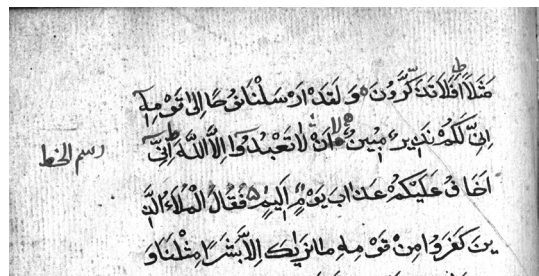 مَثَلًا اَفَلَا تَذَكَّرُونَ وَلَقَدْ اَرْسَلْنَا نُوحًا اِلٰى قَوْمِهٖ
اِنِّى لَكُمْ نَذِيرٌ مُبِينٌ اَنْ لَا تَعْبُدُوا اِلَّا اللّٰهَ اِنِّى
رسم الخط
اَخَافُ عَلَيْكُمْ عَذَابَ يَوْمٍ اَلِيمٍ فَقَالَ الْمَلَاُ الَّذ
ينَ كَفَرُوا مِنْ قَوْمِهٖ مَا نَرٰيكَ اِلَّا بَشَرًا مِثْلَنَا وَ